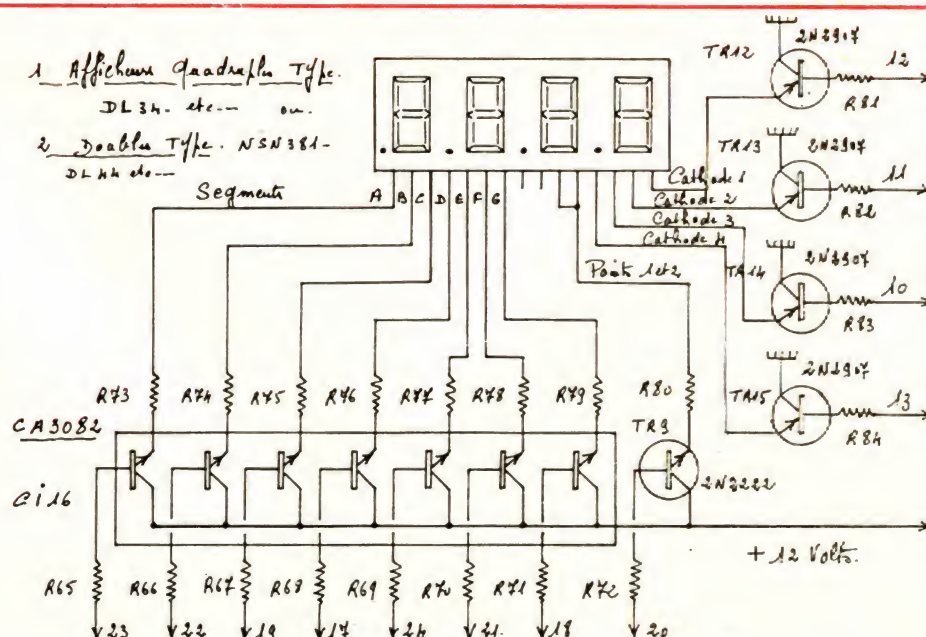 1 Afficheur quadruple Type.
DL34- etc--- ou-
2 Doubles Type. NSN381-
DL44 etc---
Segments
A B C D E F G
Cathode 1
Cathode 2
Cathode 3
Cathode 4
Points 1et2
TR12
2N2907
12
R81
TR13
2N2907
11
R82
TR14
2N2907
10
R83
TR15
2N2907
13
R84
R73 R74 R75 R76 R77 R78 R79 R80
CA3082
TR9
2N2222
Ci16
+12 Volts.
R65 R66 R67 R68 R69 R70 R71 R72
23 22 19 17 24 21. 18 20